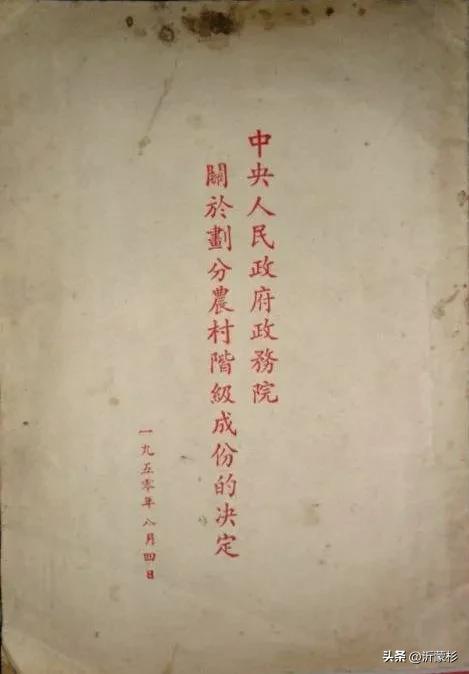 中央人民政府政務院
關於劃分農村階級成份的决定
一九五零年八月四日
头条 @沂蒙杉